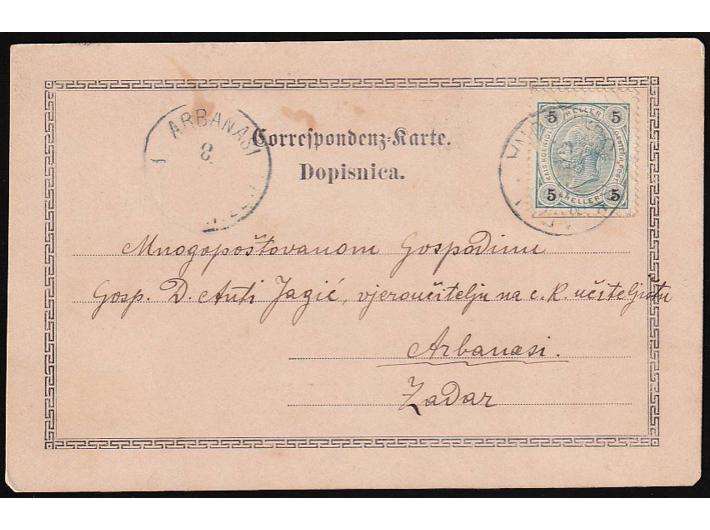 ARBANASI
8.
Correspondenz-Karte.
Dopisnica.
5 HELLER 5
5 HELLER 5
Mnogopoštovanom Gospodinu
Gosp. D. Anti Jagić, vjeroučitelju na c. k. učiteljištu
Arbanasi.
Zadar